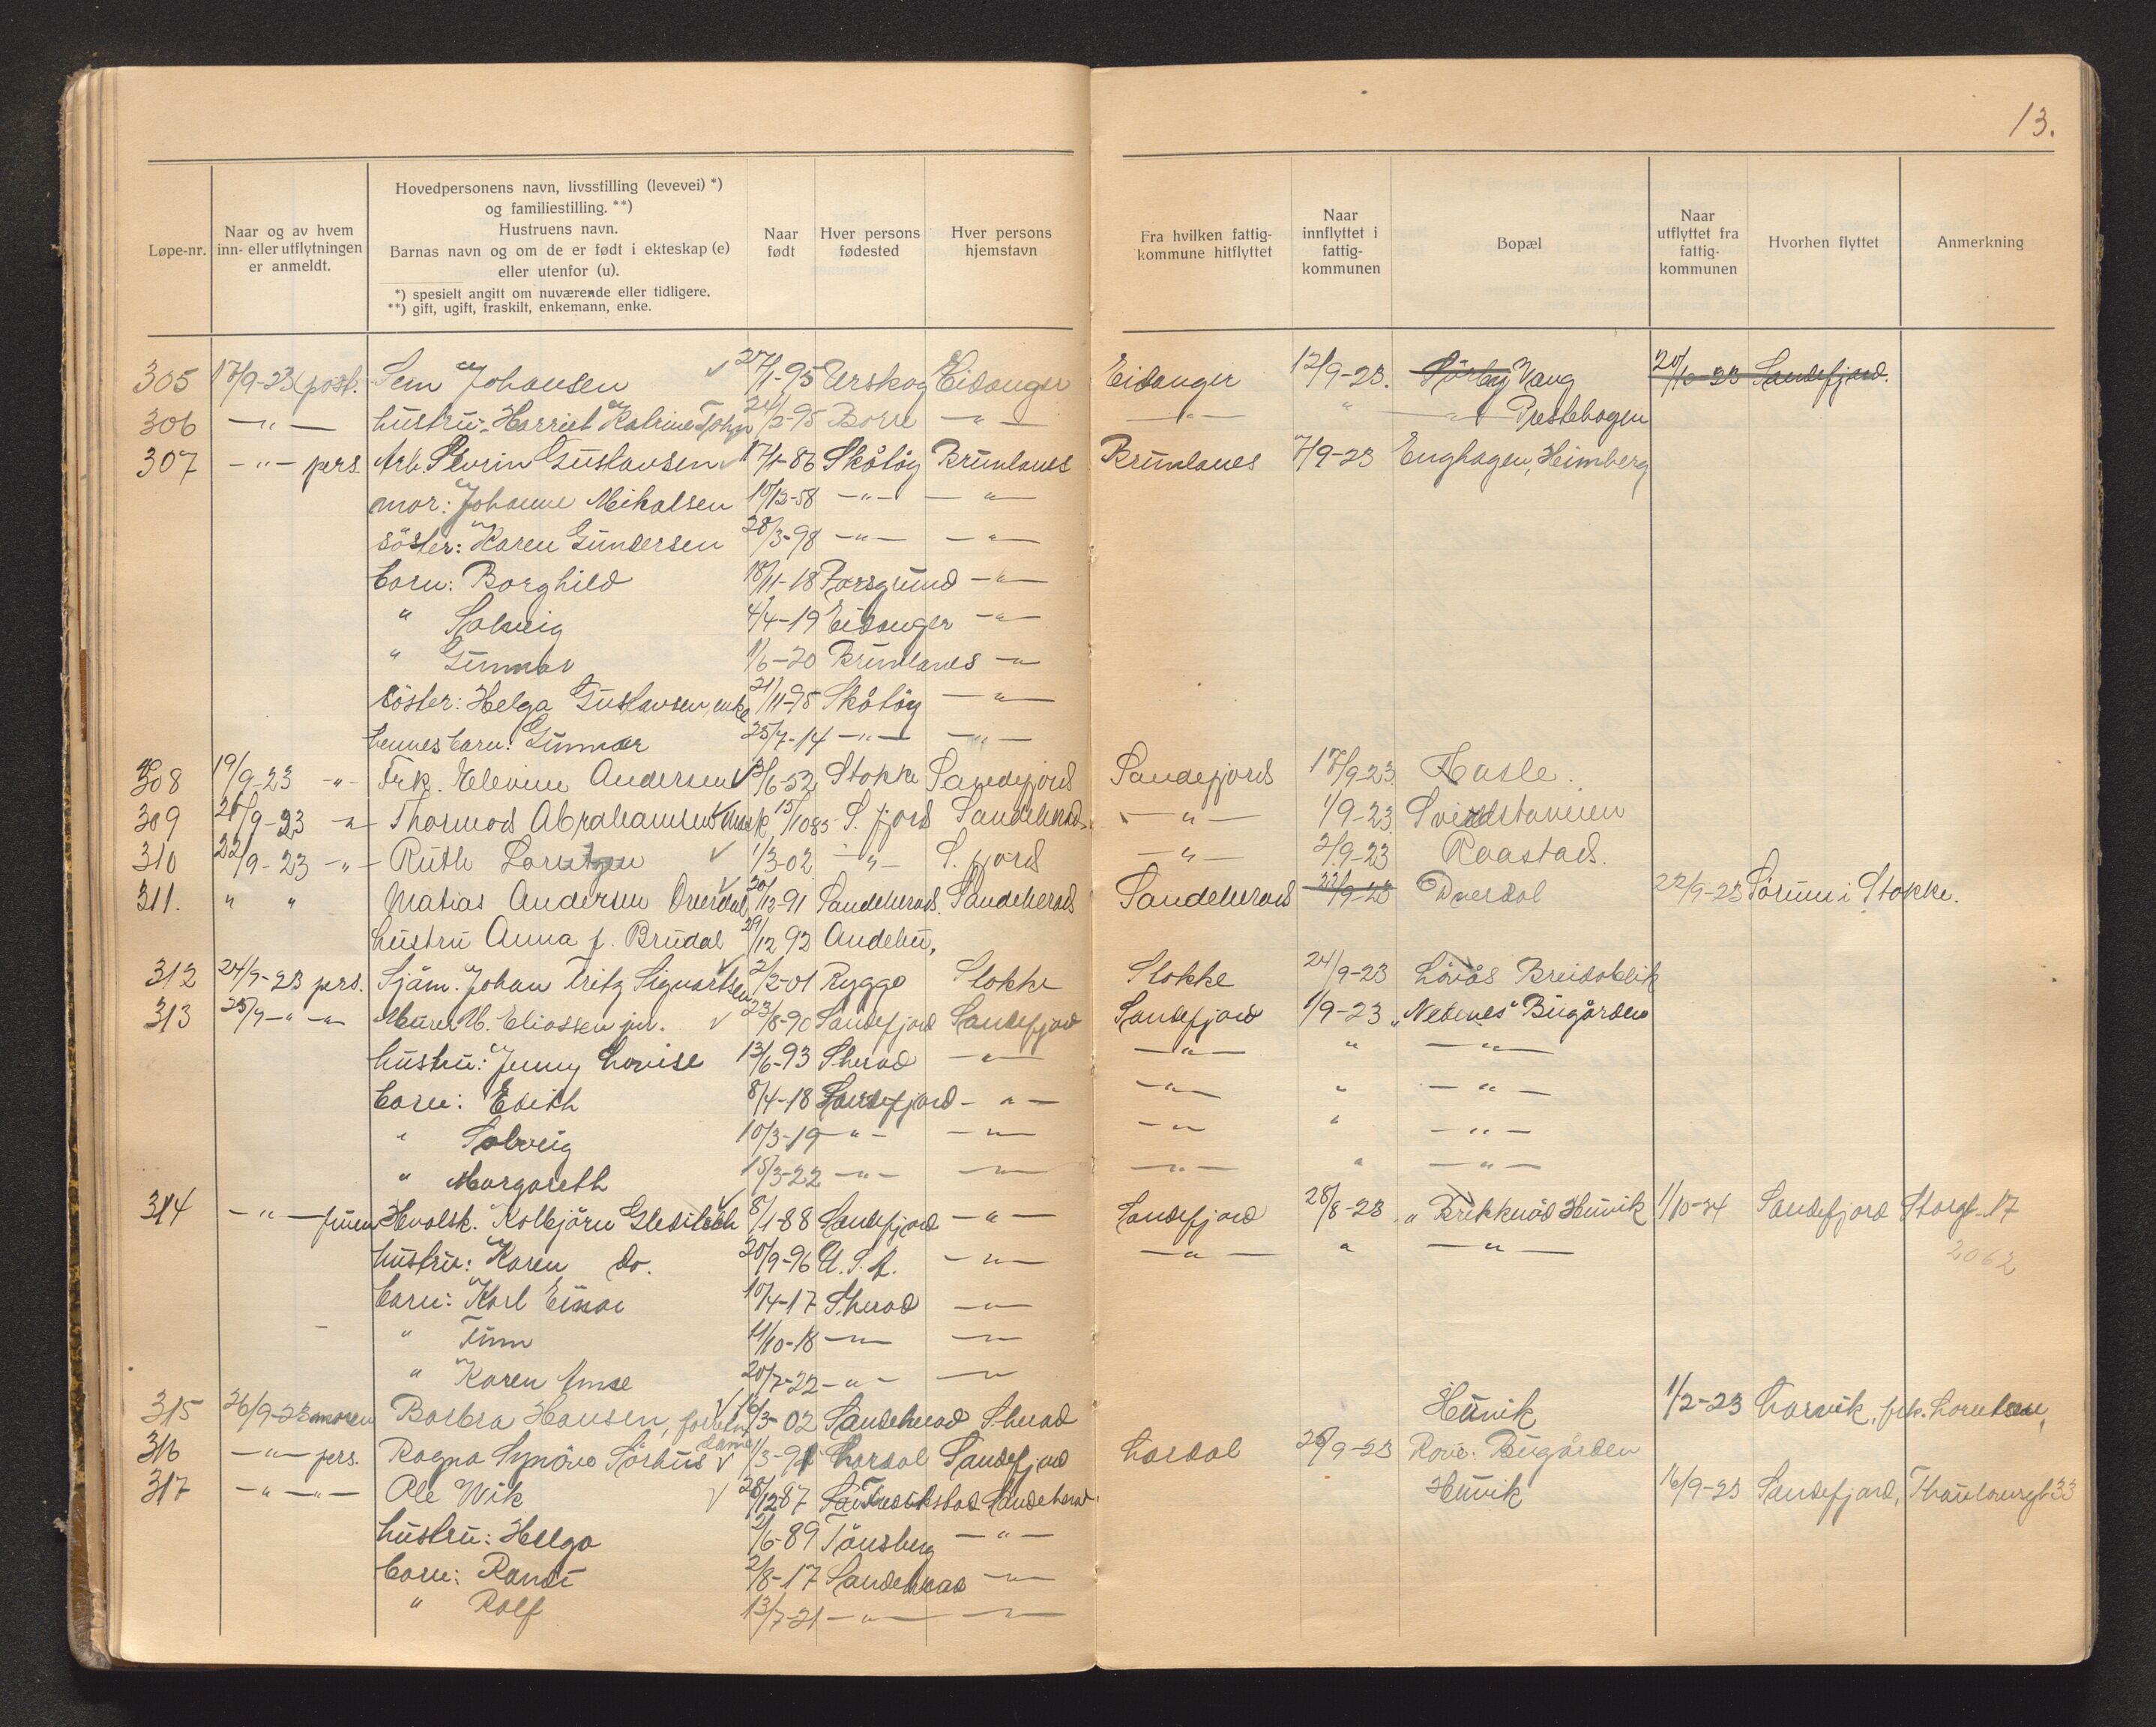 13.
Løpe-nr. | Naar og av hvem inn- eller utflytningen er anmeldt. | Hovedpersonens navn, livsstilling (levevei) *) og familiestilling. **) Hustruens navn. Barnas navn og om de er født i ekteskap (e) eller utenfor (u). *) spesielt angitt om nuværende eller tidligere. **) gift, ugift, fraskilt, enkemann, enke. | Naar født | Hver persons fødested | Hver persons hjemstavn | Fra hvilken fattigkommune hitflyttet | Naar innflyttet i fattigkommunen | Bopæl | Naar utflyttet fra fattigkommunen | Hvorhen flyttet | Anmerkning
305 17/9-23 (post. Sem Johansen 27/1-95 Urskog Eidanger Eidanger 12/9-23. Sörby Vang 20/10-23 Sandefjord.
306 -"- hustru: Harriet Katrine Joh 24/2-95 Borre -"- -"- " -"- Prestehagen
307 -"- pers. Arb. Sevrin Gustavsen 17/1-86 Skåtöy Brunlanes Brunlanes 7/9-23 Enghagen, Heimberg
mor: Johanne Mikalsen 10/12-58 -"- -"-
söster: Karen Gundersen 28/3-98 -"- -"-
barn: Borghild 18/11-18 Porsgrund -"-
" Solveig 4/4-19 Eidanger -"-
" Gunnar 1/6-20 Brunlanes -"-
söster: Helga Gustavsen, enke 21/11-95 Skåtöy -"-
hennes barn: Gunnar 25/7-14 -"- -"-
308 19/9-23 -"- Frk. Elevine Andersen 3/6-52 Stokke Sandefjord Sandefjord 17/9-23 Hasle.
309 21/9-23 -"- Thormod Abrahamsen 15/10 85 S. fjord Sandeherad -"- 1/9-23
310 22/9-23 -"- Ruth Lorntzen 1/3-02 -"- S. fjord -"- 2/9-23 Raastad.
311. " " Matias Andersen Överdal 20/12-91 Sandeherad. Sandeherad Sandeherad 22/9-23 Överdal 22/9-23 Sörum i Stokke.
hustru Anna f. Brudal 29/12 92 Andebu.
312 24/9-23 pers. Sjöm. Johan Fritz Sigvartsen 2/2-01 Rygge Stokke Stokke 24/9-23 Lövås Breidablik
313 25/9-"- -"- Murer M. Eliassen jun. 23/8-90 Sandefjord Sandefjord Sandefjord 1/9-23 "Nebenes" Bugården
hustru: Jenny Lovise 13/6-93 S.herad -"- -"- " -"-
barn: Edith 8/4-18 Sandefjord -"- -"- " -"-
" Solveig 10/3-19 -"- -"- -"- " -"-
" Margareth 15/3-22 -"- -"- -"- " -"-
314 -"- fruen Hvalsk. Kolbjörn Gleditsch 8/1-88 Sandefjord -"- Sandefjord 28/8-23 Hunvik 1/10-24 Sandefjord Storgt. 17
hustru: Karen do. 20/9-96 U.S.A. -"- -"- " -"- 2062
barn: Karl Einar 10/4-17 S.herad -"-
" Finn 11/10-18 -"- -"-
" Karen Anne 20/7-22 -"- -"-
315 26/9-23 moren Borbra Hansen, forretn. dame 16/3-02 Sandeherad S.herad Hunvik 1/2-23 Larvik, frk. Lorentsen,
316 -"- pers. Ragna Synöve Sörhus 1/3-91 Lardal Sandefjord Lardal 26/9-23 Rove. Bugården
317 -"- -"- Ole Wik 28/12 87 Fredrikstad Sandeherad. Hunvik 16/9-23 Sandefjord, Thaulowsgt 33
hustru: Helga 2/6-89 Tönsberg -"-
barn: Randi 2/8-17 Sandeherad -"-
" Rolf 13/7-21 -"- -"-